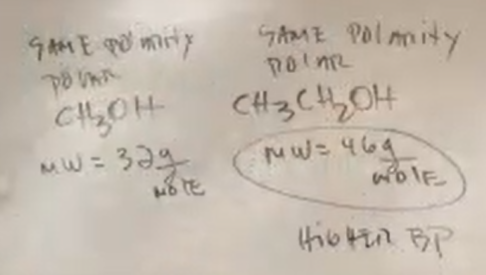 SAME POLARITY
POLAR
CH3OH
MW = 32 g
MOLE
SAME POLARITY
POLAR
CH3CH2OH
MW = 46 g
MOLE
HIGHER BP